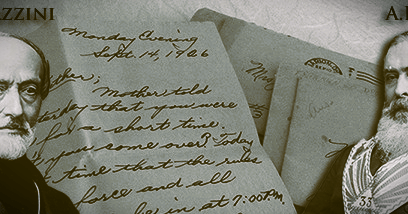 ZZINI
A.
Monday Evening
Sept. 14, 1926
ther;
Mother told
terday that you were
for a short time
you some over? Today
t time that the rules
force and all
be in at 7:00 P.M.
33